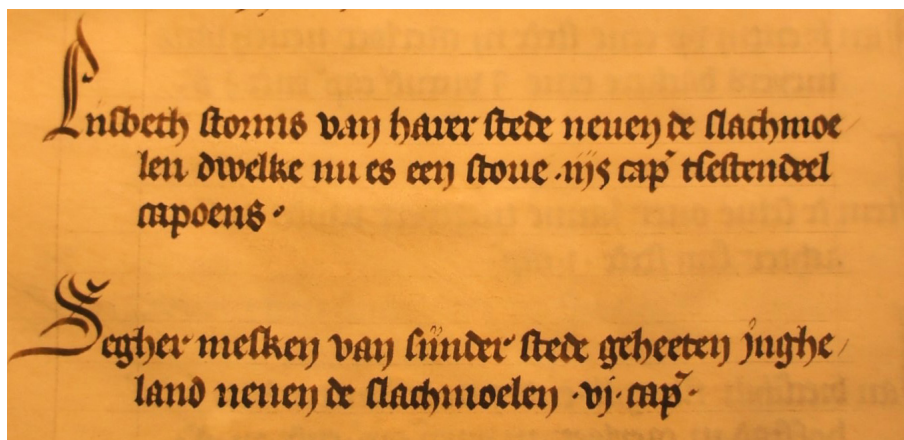 Lijsbeth storms van harer stede neuen de slachmoe
len dwelke nu es een stoue .iijs cap tsestendeel
capoens.
Segher mesken van sijnder stede geheeten jnghe/
land neuen de slachmoelen .vj. cap.